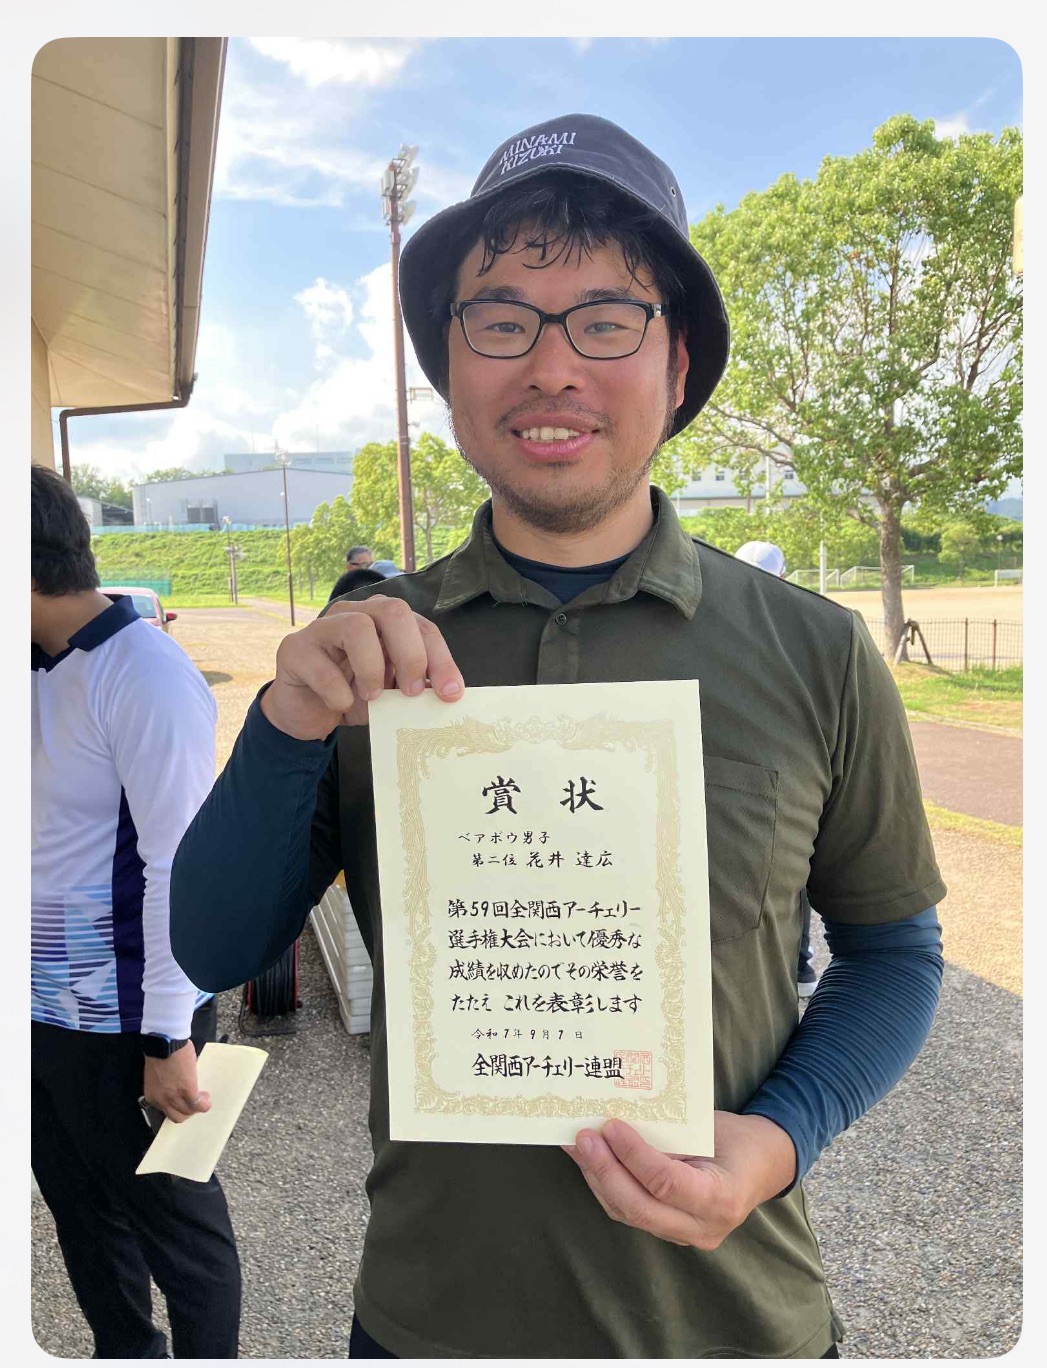 MINAMI
KIZUKI
賞状
ベアボウ男子
第二位 花井 達広
第59回全関西アーチェリー
選手権大会において優秀な
成績を収めたのでその栄誉を
たたえ これを表彰します
令和7年9月7日
全関西アーチェリー連盟